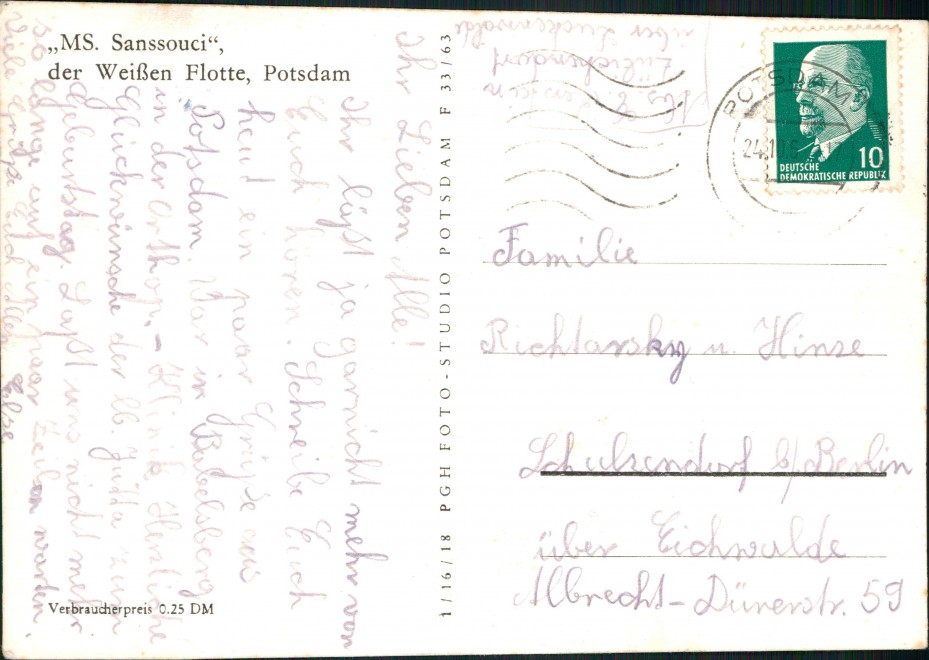 „MS. Sanssouci“,
der Weißen Flotte, Potsdam
Ihr Lieben Alle!
Ihr laßt ja garnicht mehr von
Euch hören. Schreibe Euch
heut ein paar Grüße aus
Potsdam. War in Babelsberg
in der Orthop.-Klinik. Herzliche
Glückwünsche der lb. Jutta zum
Geburtstag. Laßt uns nicht mehr
so lange auf ein paar Zeilen warten.
Viele Grüße Euch allen
Verbraucherpreis 0.25 DM
1/16/18 PGH FOTO-STUDIO POTSDAM F 33/63
über Luckenwalde
POTSDAM
24.10
10
DEUTSCHE
DEMOKRATISCHE REPUBLIK
Familie
Richtarsky u. Hinze
Schulzendorf b/Berlin
über Eichwalde
Albrecht-Dürerstr. 59